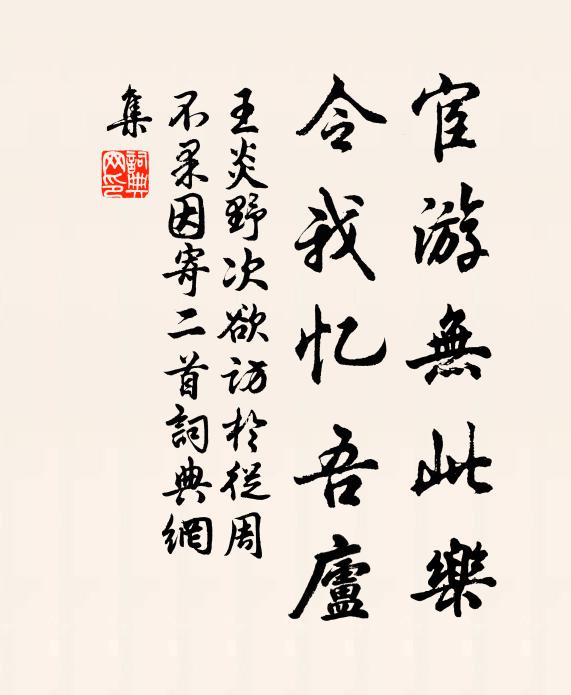 宦游無此樂
令我忆吾廬
王炎野次欲訪於從周
不果因寄二首詞典網
集
詞典
网印